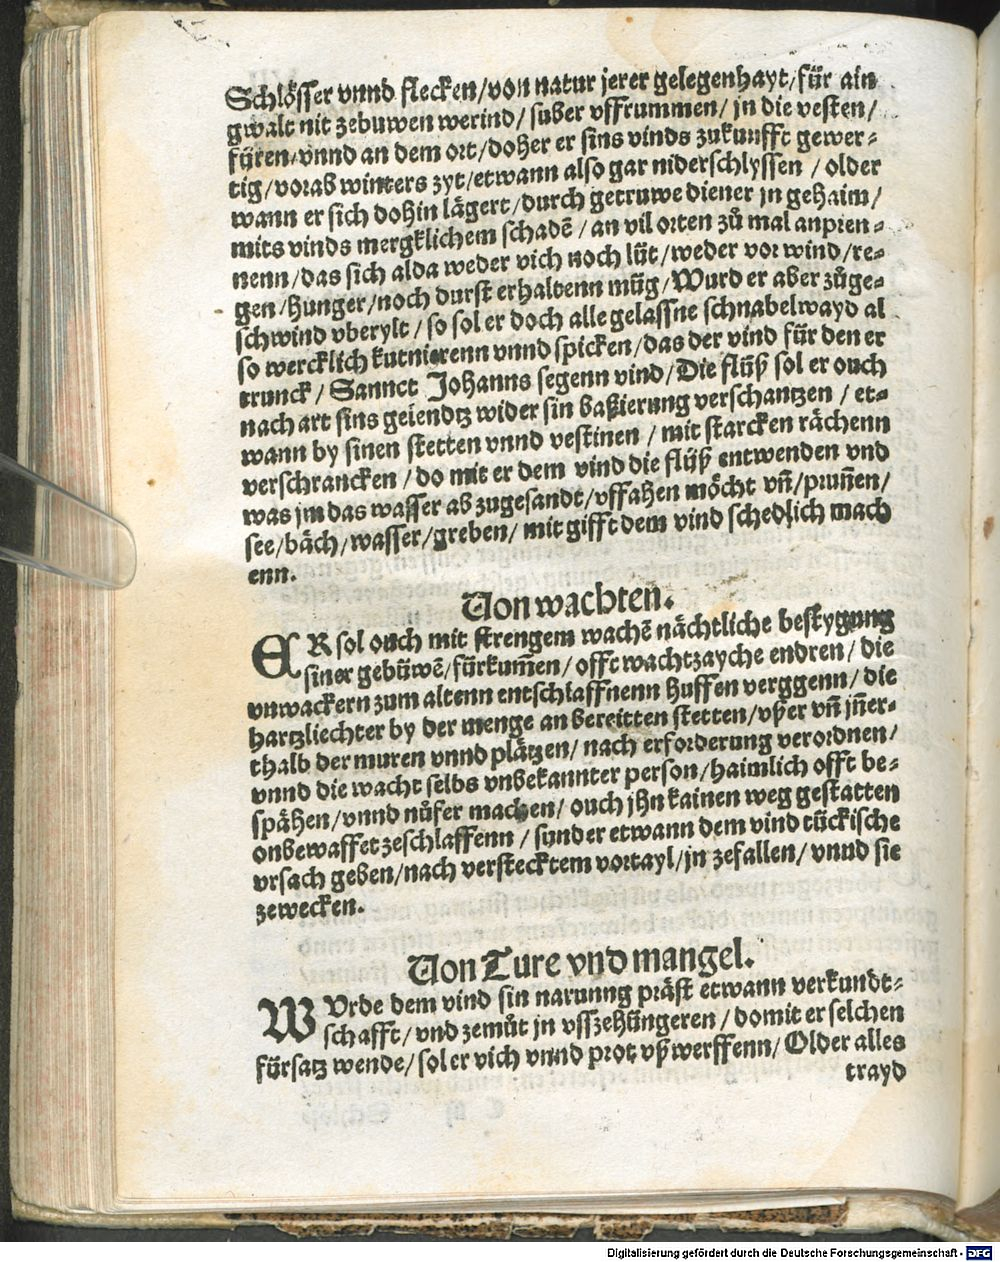 Schlösser vnnd flecken/von natur jerer gelegenhayt/für ain
gwalt nit zebuwen werind/suber vffrummen/jn die vesten/
füren/vnnd an dem ort/doher er sins vinds zukunfft gewer⸗
tig/vorab winters zyt/etwann also gar niderschlyssen/older
wann er sich dohin lägert/durch getruwe diener jn gehaim/
mits vinds mergklichem schadē/an vil orten zů mal anpren⸗
nenn/das sich alda weder vich noch lüt/weder vor wind/re⸗
gen/hunger/noch durst erhaltenn müg/Wurd er aber zůge⸗
schwind vberylt/so sol er doch alle gelassne schnabelwayd al
so wercklich kutnierenn vnnd spicken/das der vind für den er
trunck/Sannct Johanns segenn vind/Die flüß sol er ouch
nach art sins geiendtz wider sin baßierung verschantzen/et⸗
wann by sinen stetten vnnd vestinen/mit starcken rächenn
verschrancken/do mit er dem vind die flüß entwenden vnd
was jm das wasser ab zugesandt/vffahen möcht vñ/pruñen/
see/bäch/wasser/greben/mit gifft dem vind schedlich mach
enn.
Von wachten.
ER sol ouch mit strengem wachē nächtliche bestygung
siner gebüwē/fürkum̄en/offt wachtzayche endren/die
vnwackern zum altenn entschlaffnenn huffen verggenn/die
hartzliechter by der menge an bereitten stetten/vßer vñ jñer⸗
thalb der muren vnnd plätzen/nach erforderung verordnen/
vnnd die wacht selbs vnbekannter person/haimlich offt be⸗
spähen/vnnd nůfer machen/ouch jhn kainen weg gestatten
onbewaffet zeschlaffenn/sunder etwann dem vind tückische
vrsach geben/nach verstecktem vortayl/jn zefallen/vnnd sie
zewecken.
Von Ture vnd mangel.
WUrde dem vind sin narunng präst etwann verkundt⸗
schafft/vnd zemůt jn vsszehüngeren/domit er selchen
fürsatz wende/sol er vich vnnd prot vß werffenn/Older alles
trayd
Digitalisierung gefördert durch die Deutsche Forschungsgemeinschaft - DFG